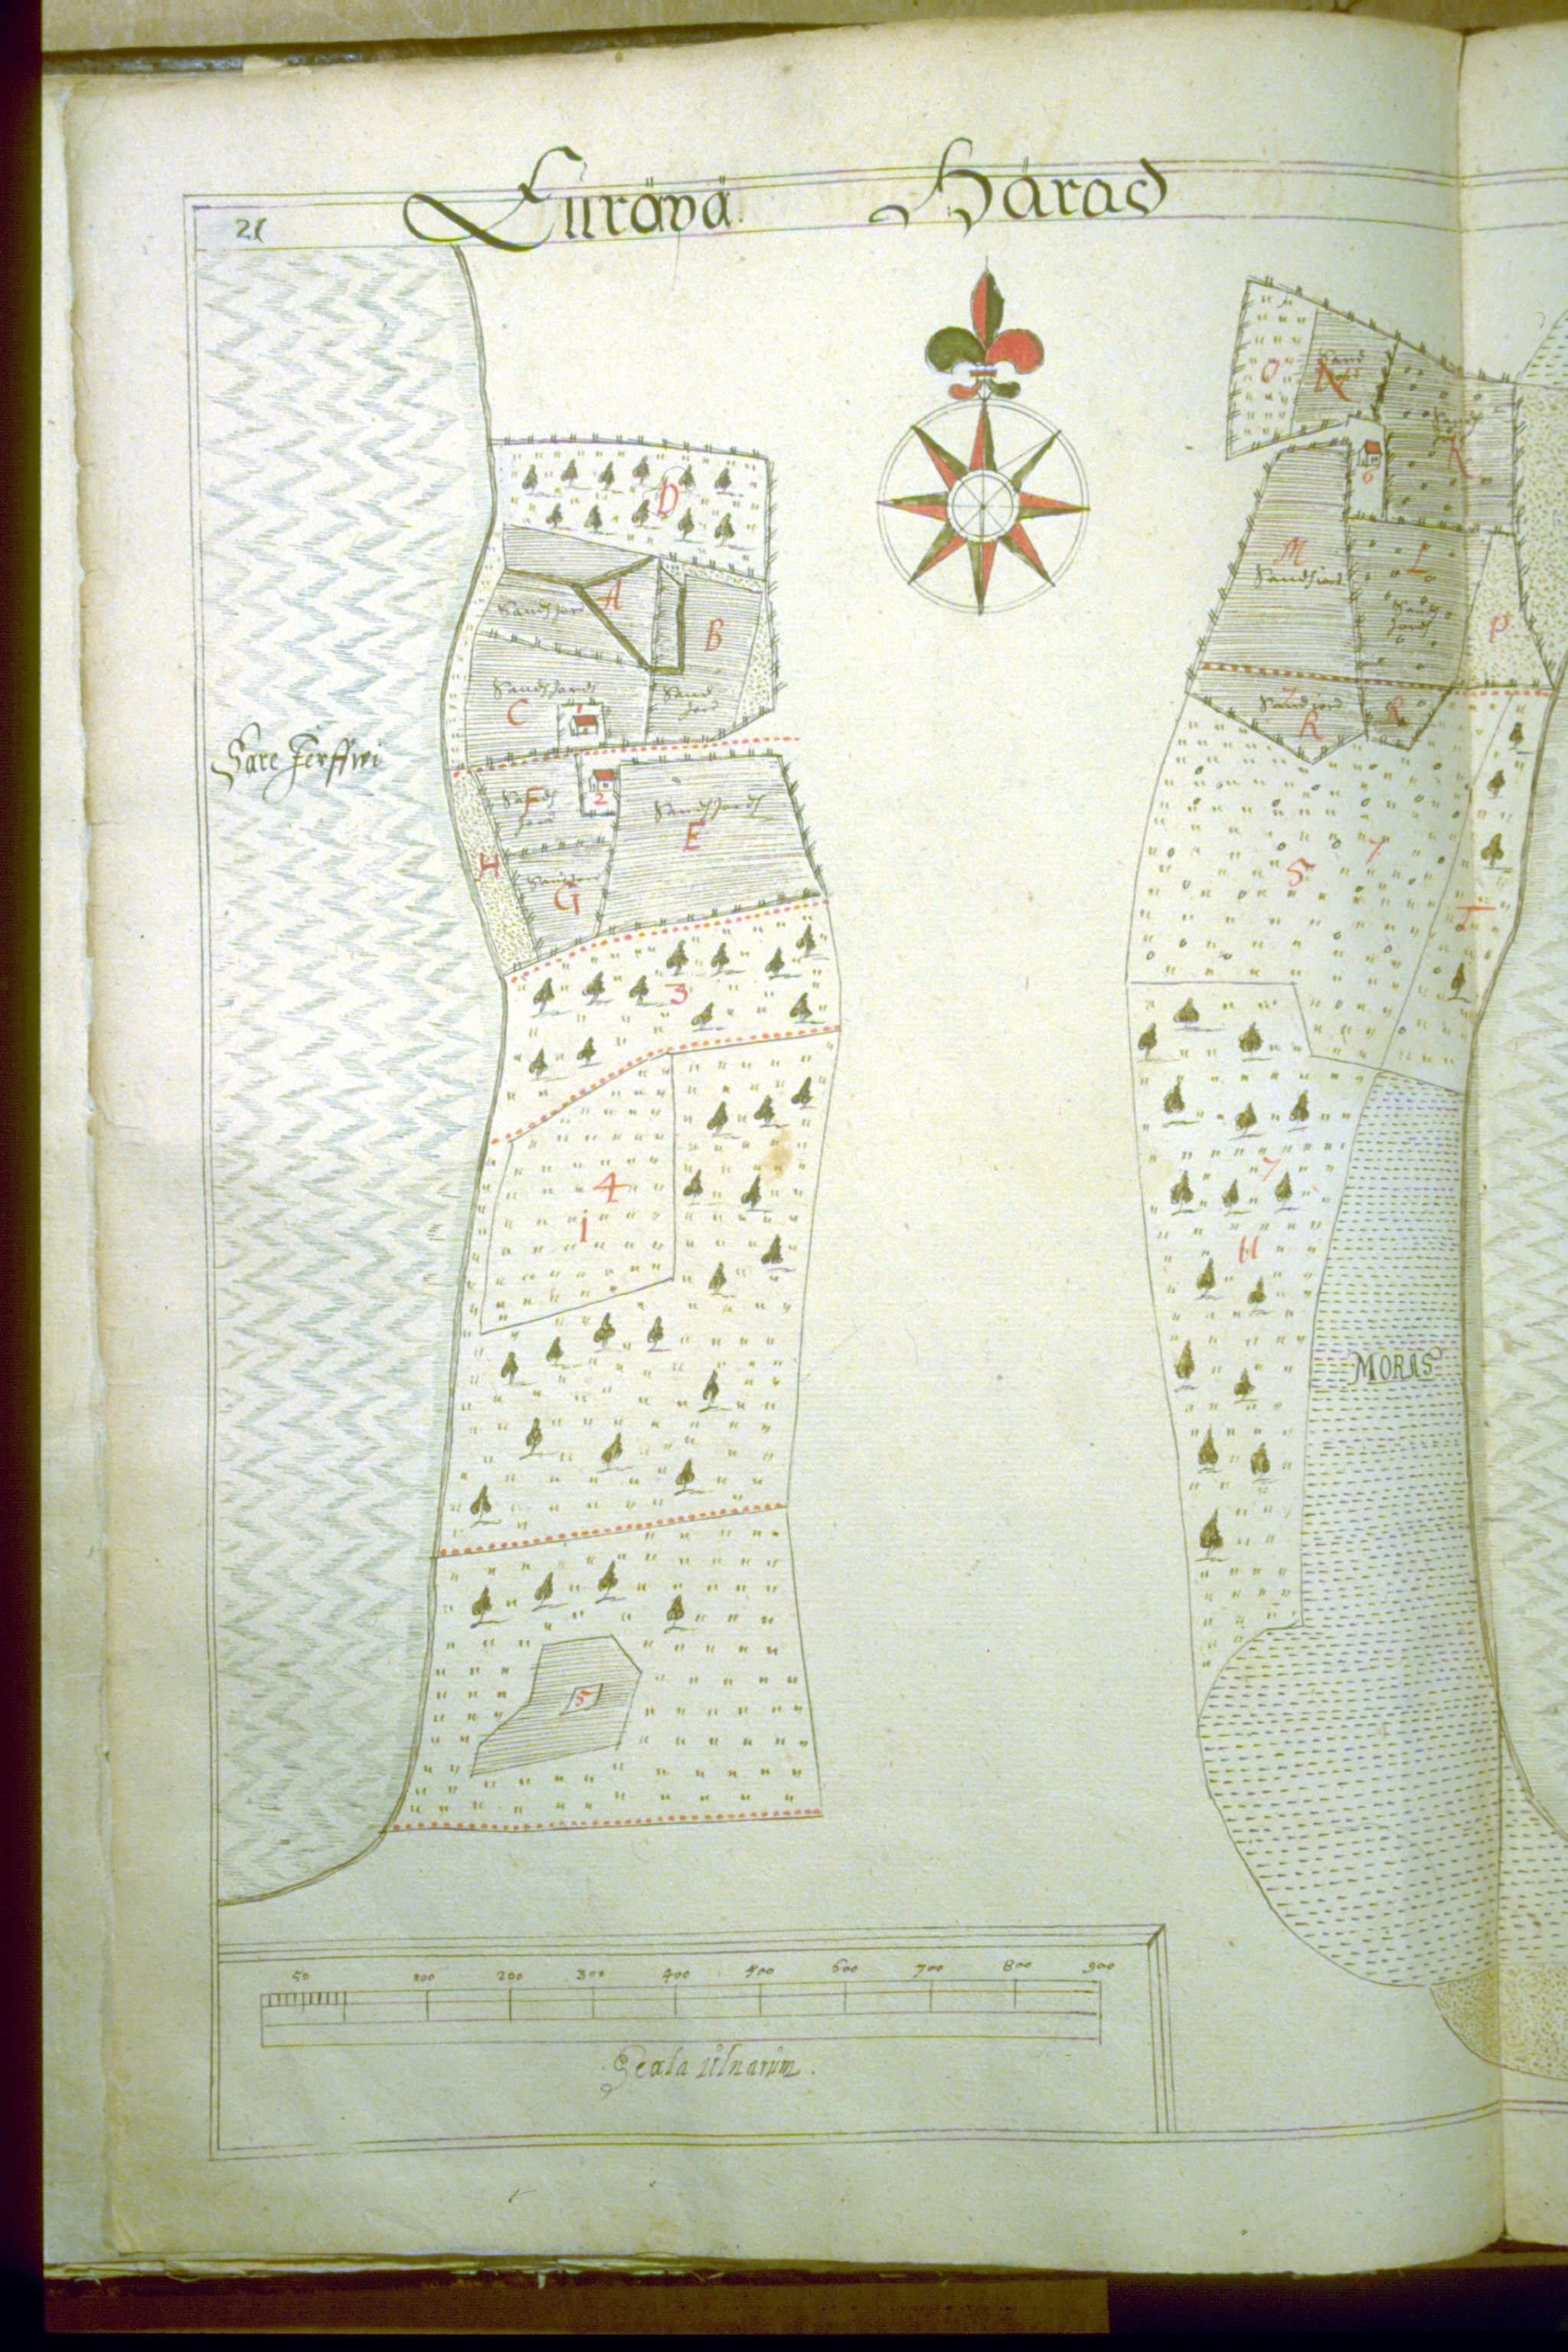 21
Eüräpä Härad
D
O
N
Sand
K
A
Sandjord
B
M
Sandjord
L
Sand
jord
P
Sandjord
C
1
Sand
jord
Sandjord
R
Sare Jerffwi
F
Sand
jord
2
Sandjord
E
H
Sandjord
G
6
S
7
T
3
4
i
7
MORAS
5
50 100 200 300 400 500 600 700 800 900
Scala Ulnarum.